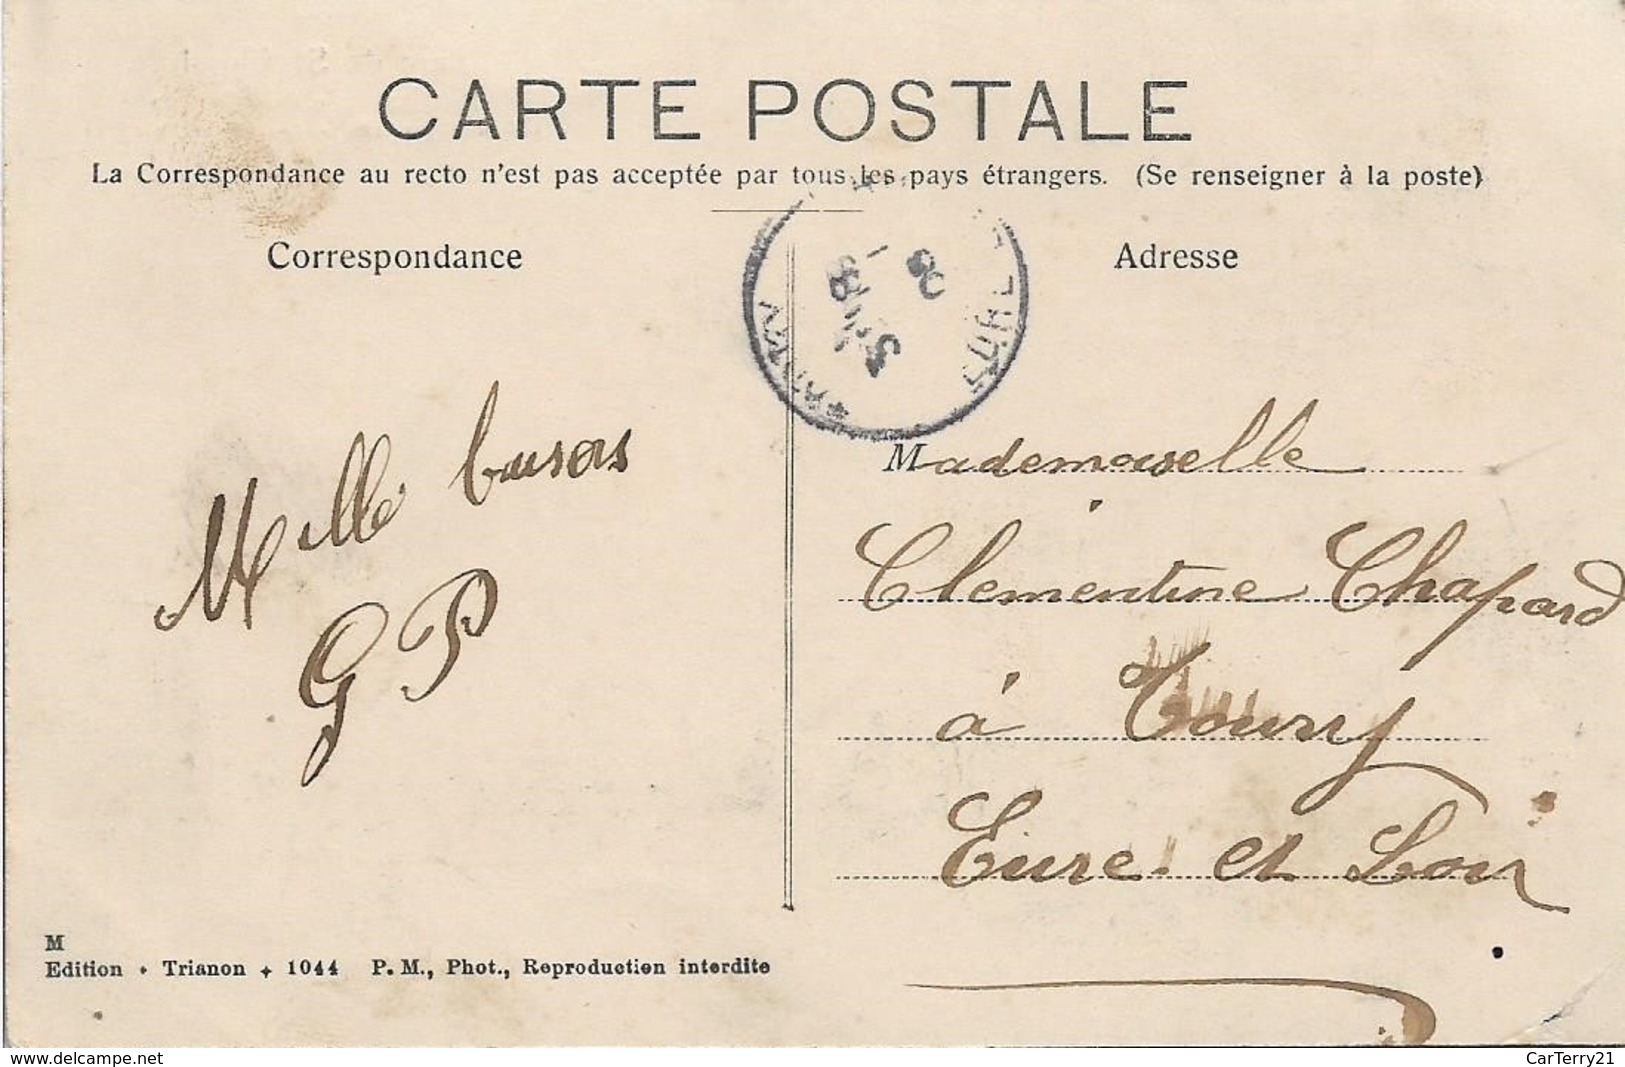 CARTE POSTALE
La Correspondance au recto n'est pas acceptée par tous les pays étrangers. (Se renseigner à la poste)
Correspondance
Adresse
Mille baisers
G P
Mademoiselle
Clementine Chapard
à Toury
Eure et Loir
M
Edition • Trianon + 1044 P. M., Phot., Reproduction interdite
www.delcampe.net
CarTerry21